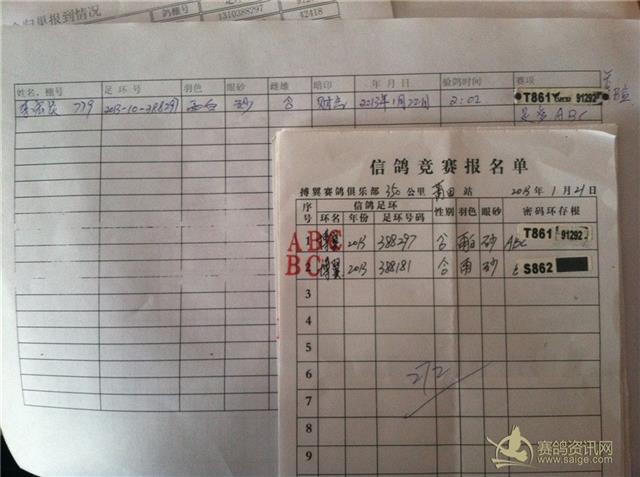 归巢报到情况
鸽棚号
1310388297
42418
姓名,棚号 足环号 羽色 眼砂 雌雄 暗印 年月日 验鸽时间 赛项
779 2013-10-388297 砂 2013年1月22日 2:02 T861 91292
ABC
信鸽竞赛报名单
搏翼赛鸽俱乐部 350 公里 莆田 站 2013年1月21日
序号 信鸽足环 性别 羽色 眼砂 密码环存根
环名 年份 足环号码
ABC 1 搏翼 2013 388297 雨白 砂 ABC T861 91292
BC 2 搏翼 2013 388181 雨 砂 S862
3
4
5
6
7
8
9
272
赛鸽资讯网
www.saige.com